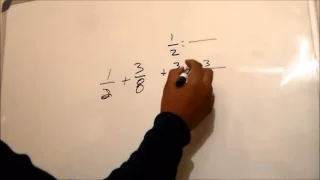 1/2 = —
1/2 + 3/8 + 3